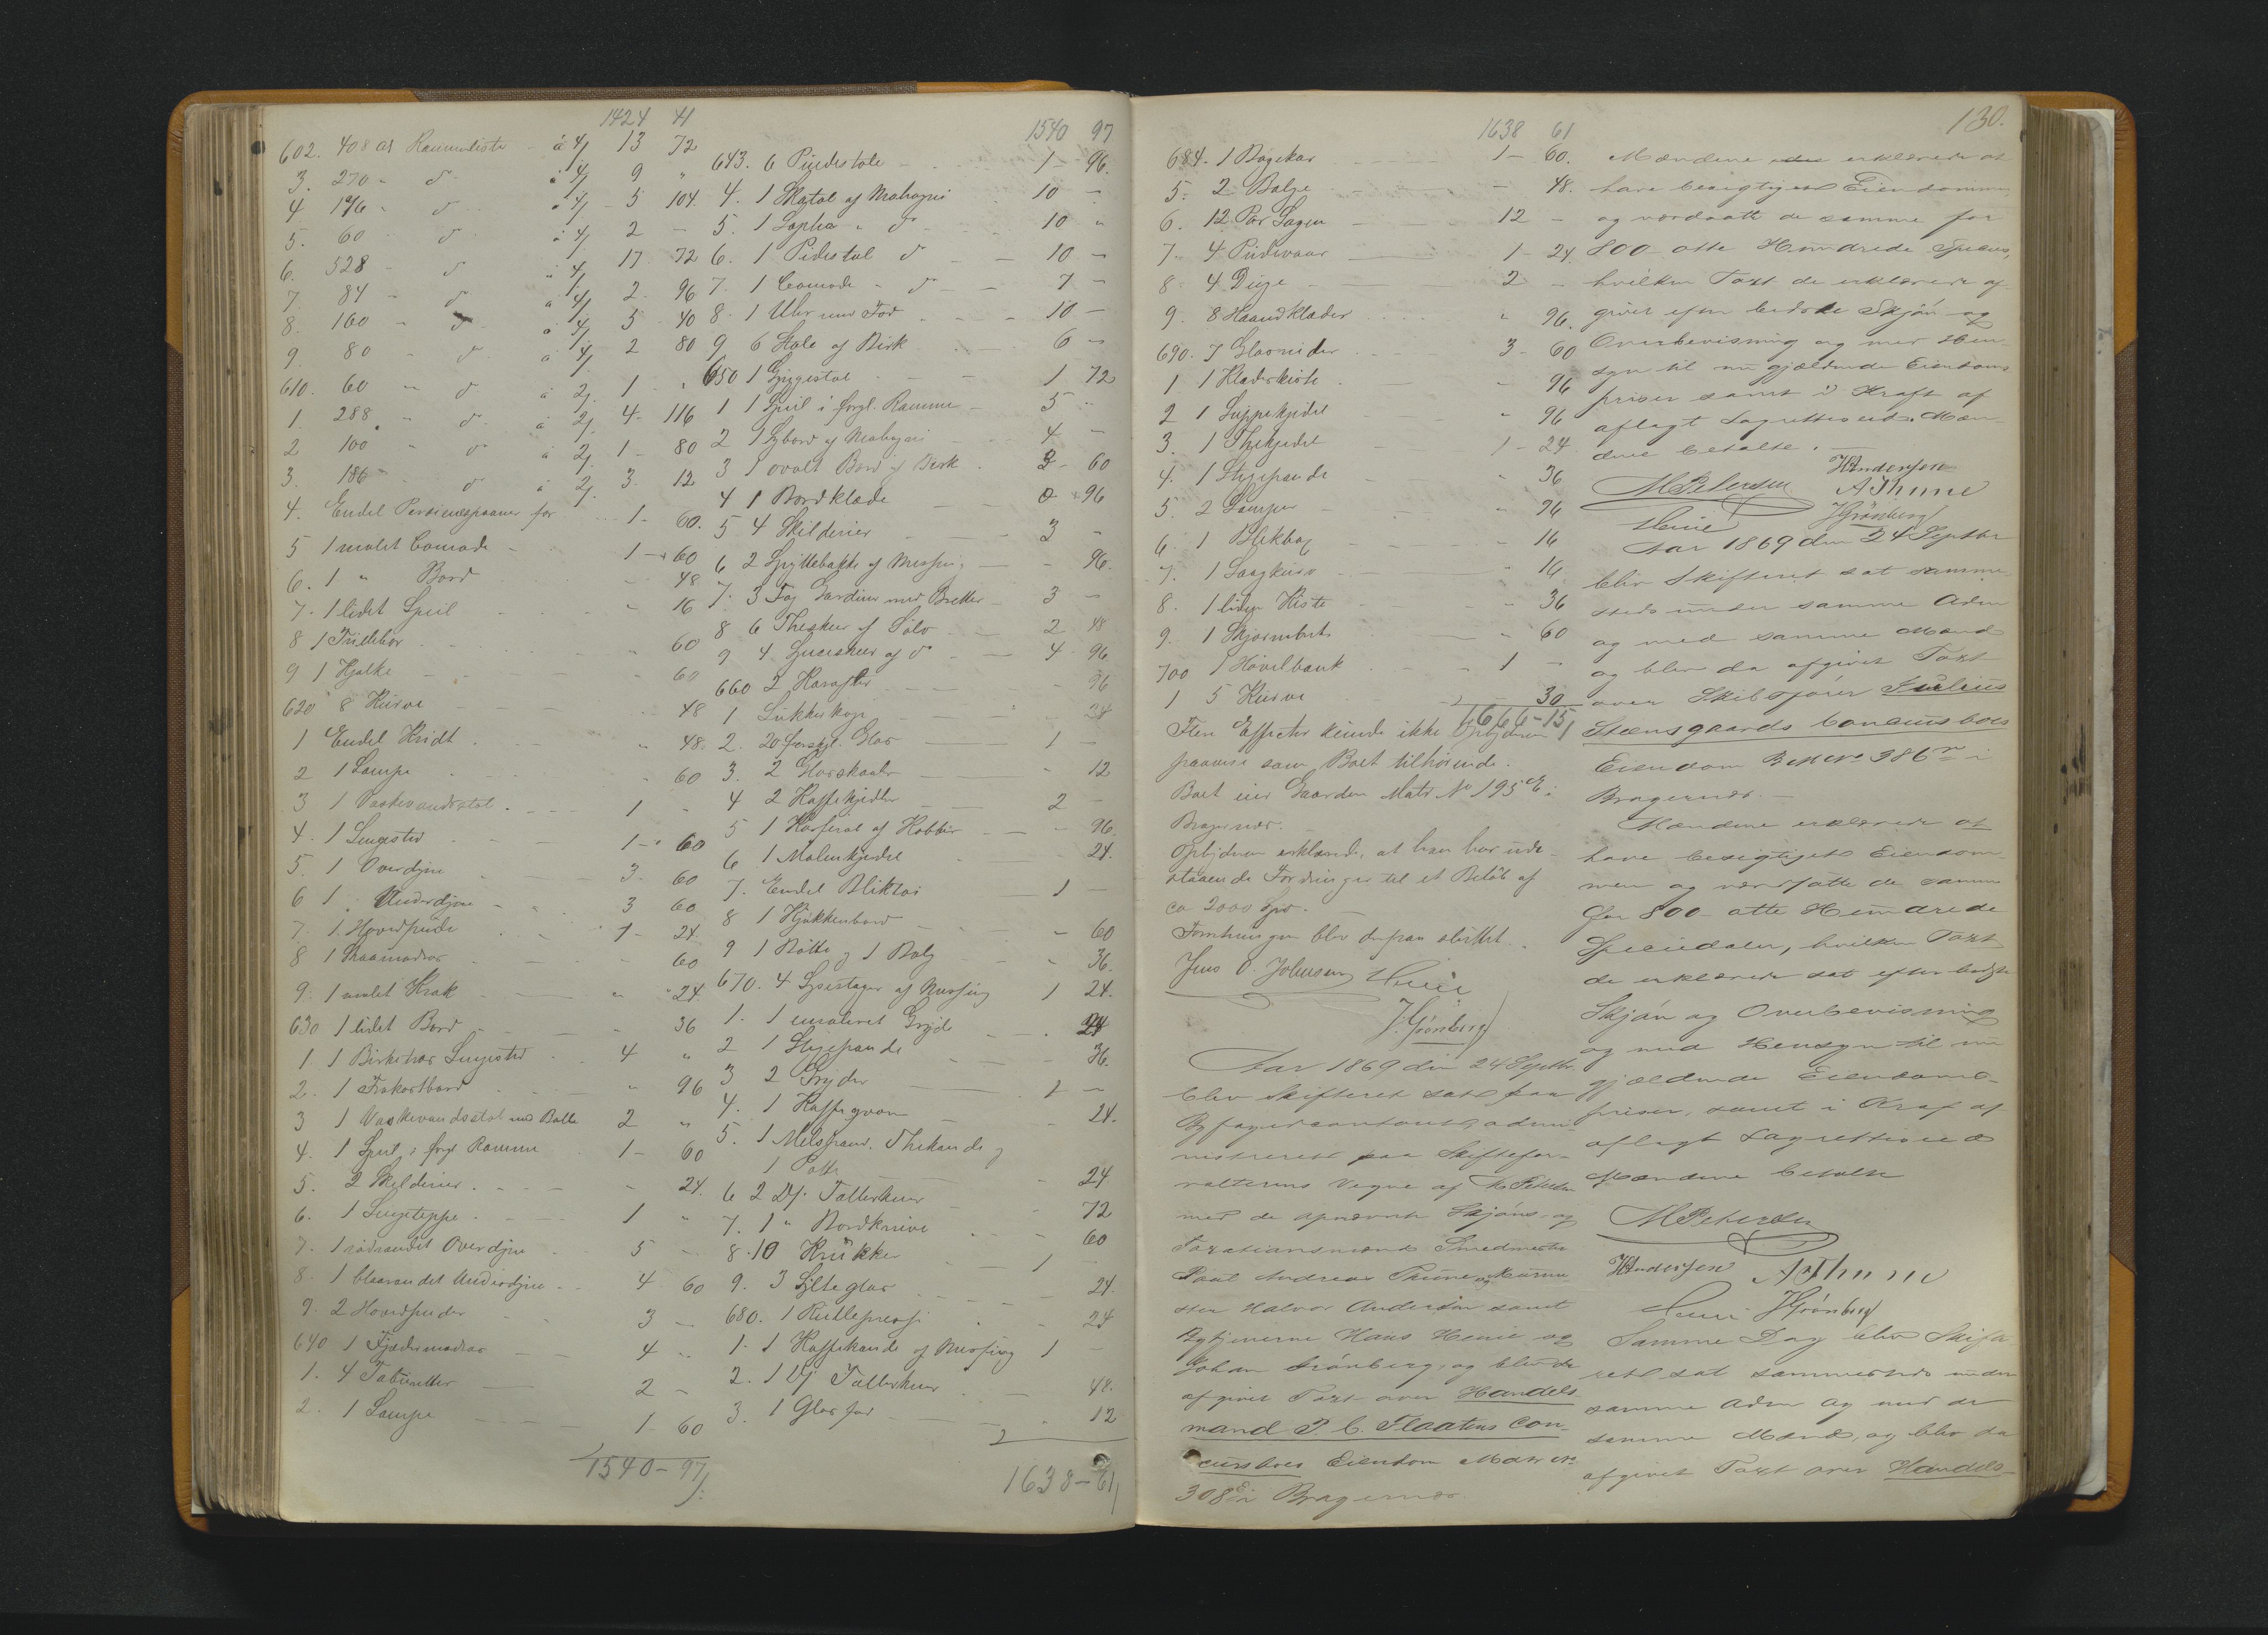 1424 41
602. 408 al Rammeliste à 4/ 13 72
3. 270 - d - à 4/ 9 "
4 176 - d - à 4/ - 5 104.
5. 60 - d à 4/ 2 -
6. 528 - d à 4/ 17 72
7. 84 - d à 4/ 2 96
8. 160 - d à 4/ 5 40
9. 80 - d à 4/ 2 80
610. 60 - d à 2/ 1 - "
1. 288 - d. à 2/ 4 - 116
2 100 " d à 2/ 1 - 80
3. 186 - d à 2/ 3. 12
4. Endel for 1 - 60.
5 1 malet Comode - 1 - 60
6. 1 " Bord - 48
7. 1 lidet Speil - 16
8 1 Trillebør 60
9 1 Hjelke - 60
620 8 Kurve - 48
1 Endel Kridt - 48.
2 1 Lampe 60
3 1 Vaskevandsstol 1 -
4. 1 Sengested 1 - 60
5. 1 Overdyne 3. 60
6 1 Underdyne - 3 60
7. 1 Hovedpude 1 - 24.
8 1 Straamadras - 60
9. 1 malet Krak - 24.
630 1 lidet Bord - 36
1. 1 Birketræs Sengested 4 "
2. 1 Frokostbord - 96
3 1 Vaskevandsstol med Balle 2 "
4. 1 Speil i forgl Ramme 1 - 60
5. 2 Skilderier - 24.
6. 1 Sengeteppe - 1 "
7. 1 rødrandet Overdyne 5 -
8. 1 blaarandet Underdyne - 4 60
9. 2 Hovedpuder 3 -
640 1 Fjædermadras 4 -
1. 4 Tabouretter 2 -
2. 1 Lampe 1 - 60
1540 - 97/
1540 97
643. 6 Pindestole - 1 - 96.
4. 1 af Mahogni 10 -
5. 1 Sopha " d 10 "
6. 1 Pidestal d 10 -
7. 1 Comode - d 7 -
8. 1 Uhr med Fod 10 -
9 6 Stole af Birk 6 -
650 1 Gyngestol 1 72
1 1 Speil i forgl. Ramme - 5 -
2 1 Sybord af Mahogni 4 -
3 1 ovalt Bord af Birk. 3 - 60
4 1 Bordklæde 0 - 96
5 4 Skilderier 3 -
6 2 Spyttebakker af Messing - 96.
7. 3 Fag Gardiner med Bretter - 3 -
8 6 Theskeer af Sølv 2 48
9 4 Spiseskeer af d 4 - 96
660 2 Karafler - 96
1 Sukkerkop - 24
2. 20 forskjl. Glas 1 -
3. 2 Glasskaaler - 12
4 2 Kaffekjedler 2 -
5 1 af Kobber - 96.
6 1 Malmkjedel 24.
7. Endel Bliktøi 1 -
8 1 Kjøkkenbord - 60
9 1 Bøtte og 1 Balg - 36.
670. 4 Lysestager af Messing 1 24.
1. 1 emaleret Gryde - 24
2 1 Stegepande - 36.
3 2 Gryder 1 -
4. 1 Kaffeqværn - 24.
5. 1 Thekande og
1 Potte - 24
6 2 Dj. Tallerkner - 72
7. 1 " Bordknive - 60
8. 10 Krukker 1 -
9. 3 Sylteglas - 24.
680. 1 - 24
1. 1 Kaffekande af Messing 1 -
2. 1 Dj Tallerkner - 48.
3. 1 Glasfad 12
1638 - 61/
1638 61
684. 1 Bøgekar 1 - 60.
5. 2 Balge - 48.
6. 12 Par Lagen 12 -
7. 4 Pudevaar 1 - 24.
8 4 Duge 2 -
9. 8 Haandklæder " 96.
690. 7 3 - 60
1 1 Klædeskiste - 96
2 1 Suppekjedel " 96
3. 1 Thekjedel 1 - 24
4. 1 Stegepande " 36
5. 2 Lamper - 96
6. 1 - 16
7. 1 - 16
8. 1 liden Kiste - 36
9. 1 Skjærmbræt - 60
700 1 Høvelbænk - 1 -
1 5 Kurve 30
1666 - 15/
Flere Effecter kunde ikke Opbyderen
paavise som Boet tilhørende.
Boet eier Gaarden Matr No 195 i
Bragernæs.
Opbyderen erklærede, at han har ude-
staaende Fordringer til et Beløb af
ca 2000 Spd.
Forretningen blev derpaa sluttet.
Jens O. Johnsen Heuie
J. Grønberg
Aar 1869 den 24 Septbr
blev Skifteret sat paa
Byfogedcontoret, admi-
nistreret paa Skiftefor-
valterens Vegne af M Petersen
med de opnævnte Skjøns- og
Taxationsmænd Smedmester
Poul Andreas Thune og Murme-
ster Halvor Andersen samt
Bytjenerne Hans Heuie og
Johan Grønberg, og blev da
afgivet Taxt over Handels
mand P. C. Flaatens Con-
cursboes Eiendom Matr No
308 i Bragernæs.
130.
Mændene erklærede at
have besigtiget Eiendommen
og værdsatte de samme for
800 otte Hundrede Species,
hvilken Taxt de erklærede af-
givet efter bedste Skjøn og
Overbevisning og med Hen-
syn til nu gjældende Eiendoms
priser samt i Kraft af
aflagt Lagretteseed. Mæn-
dene betalte.
M Petersen HAndersen
A Thune
Heuie J Grønberg
Aar 1869 den 24 Septbr
blev Skifteret sat samme-
steds under samme Adm
og med samme Mænd
og blev da afgivet Taxt
over Skibsfører Julius
Steensgaards Concursboes
Eiendom Matr No 386 i
Bragernæs. -
Mændene erklærede at
have besigtiget Eiendom-
men og værdsatte de samme
for 800 - otte Hundrede
Speciedaler, hvilken Taxt
de erklærede sat efter bedste
Skjøn og Overbevisning
og med Hensyn til nu
gjældende Eiendoms-
priser, samt i Kraf af
aflagt Lagretteseed
Mændene betalte
M Petersen
HAndersen A Thune
Heuie J Grønberg
Samme Dag blev Skifte-
rett sat sammesteds under
samme Adm og med de
samme Mænd, og blev da
afgivet Taxt over Handels-